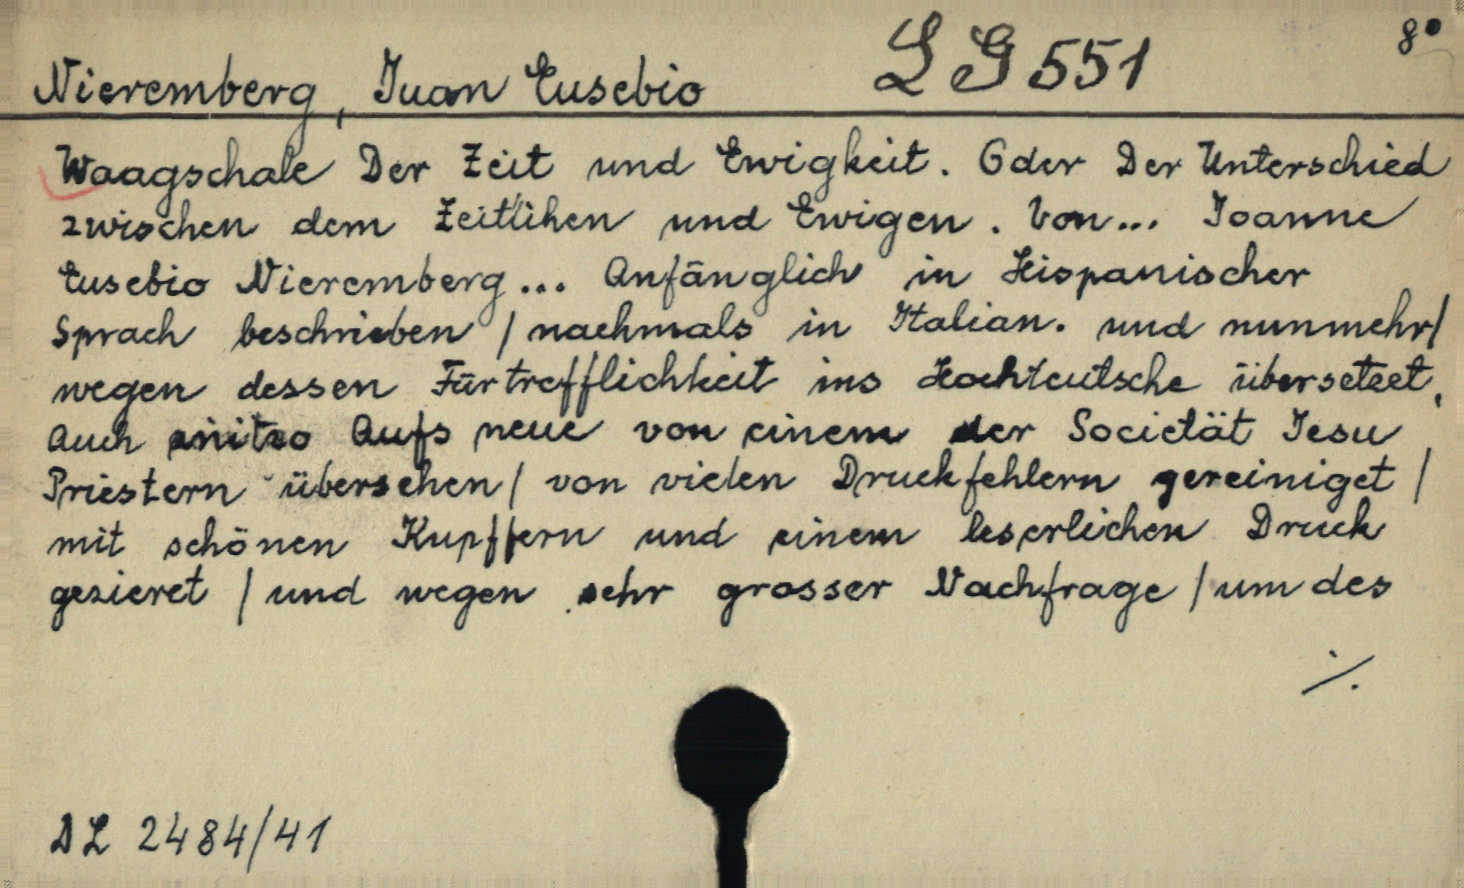 8°
Nieremberg, Juan Eusebio LG 551
Waagschale Der Zeit und Ewigkeit. Oder Der Unterschied
zwischen dem Zeitlihen und Ewigen. Von... Joanne
Eusebio Nieremberg... Anfänglich in Hispanischer
Sprach beschrieben / nachmals in Italian. und nunmehr/
wegen dessen Fürtrefflichkeit ins Hochteutsche übersetzet,
Auch Aufs neue von einem der Societät Jesu
Priestern übersehen / von vielen Druckfehlern gereiniget /
mit schönen Kupffern und einem leserlichen Druck
gezieret / und wegen sehr grosser Nachfrage / um des
./.
DL 2484/41